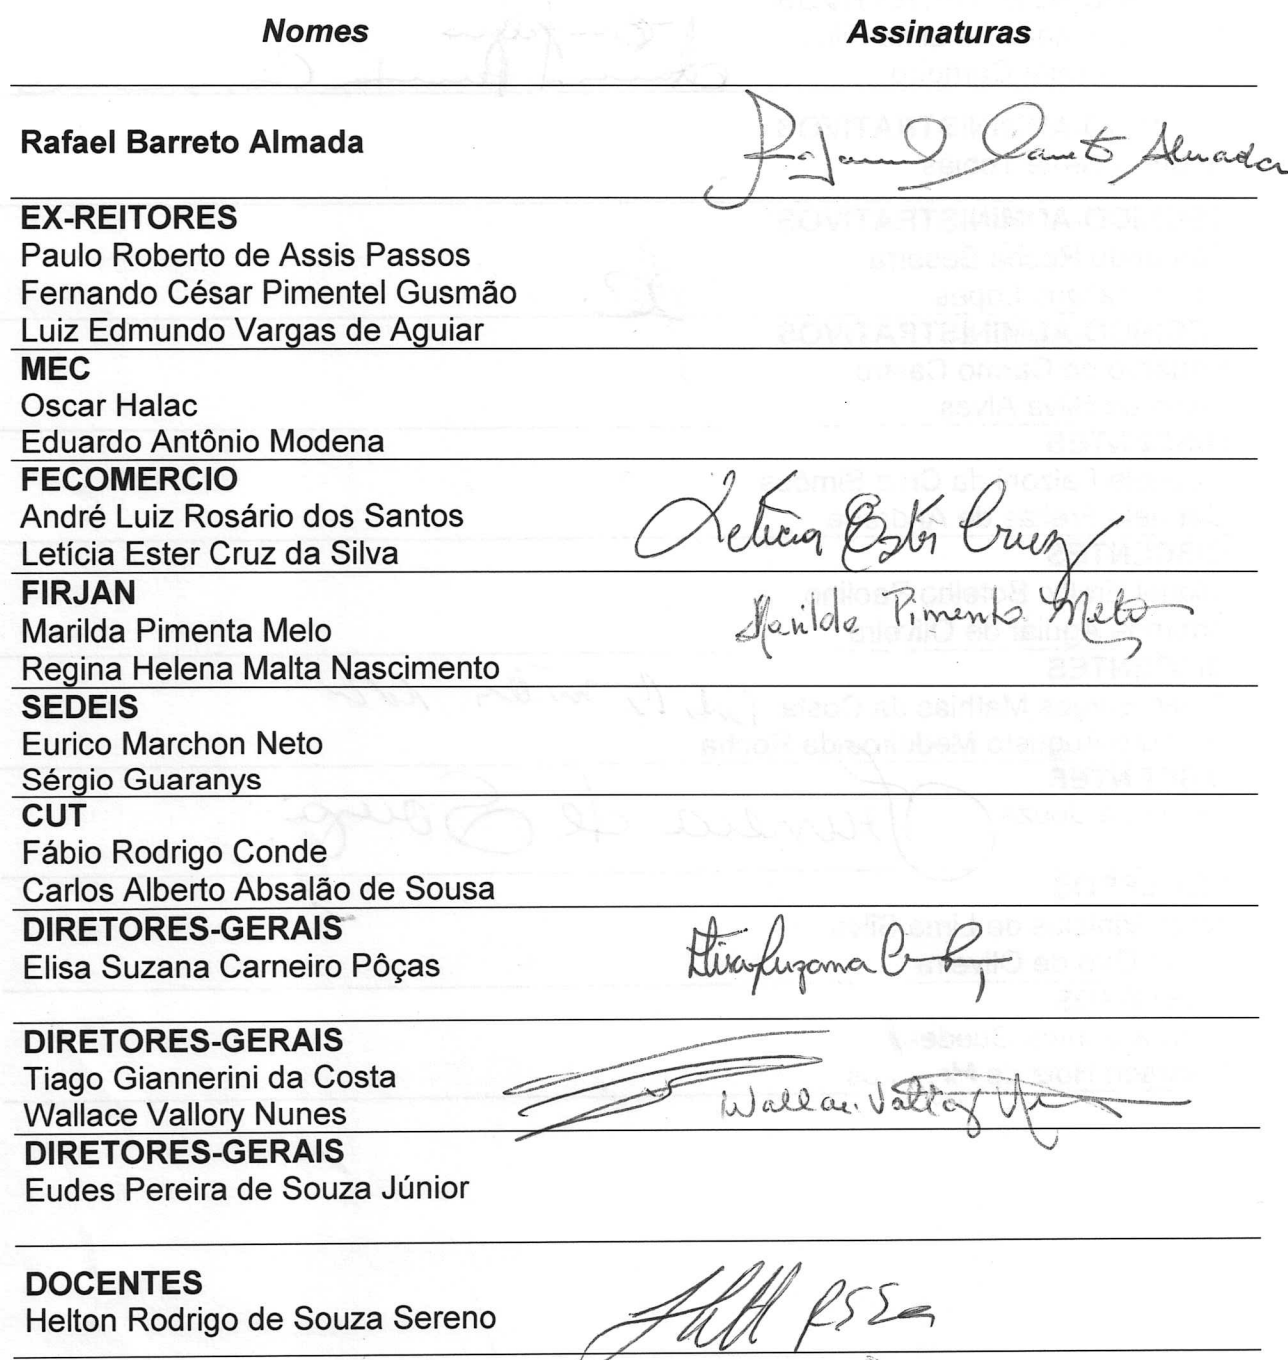 Nomes Assinaturas
Rafael Barreto Almada Rafael Barreto Almada
EX-REITORES
Paulo Roberto de Assis Passos
Fernando César Pimentel Gusmão
Luiz Edmundo Vargas de Aguiar
MEC
Oscar Halac
Eduardo Antônio Modena
FECOMERCIO
André Luiz Rosário dos Santos
Letícia Ester Cruz da Silva Letícia Ester Cruz
FIRJAN
Marilda Pimenta Melo Marilda Pimenta Melo
Regina Helena Malta Nascimento
SEDEIS
Eurico Marchon Neto
Sérgio Guaranys
CUT
Fábio Rodrigo Conde
Carlos Alberto Absalão de Sousa
DIRETORES-GERAIS
Elisa Suzana Carneiro Pôças Elisa Suzana
DIRETORES-GERAIS
Tiago Giannerini da Costa
Wallace Vallory Nunes Wallace Vallory
DIRETORES-GERAIS
Eudes Pereira de Souza Júnior
DOCENTES
Helton Rodrigo de Souza Sereno